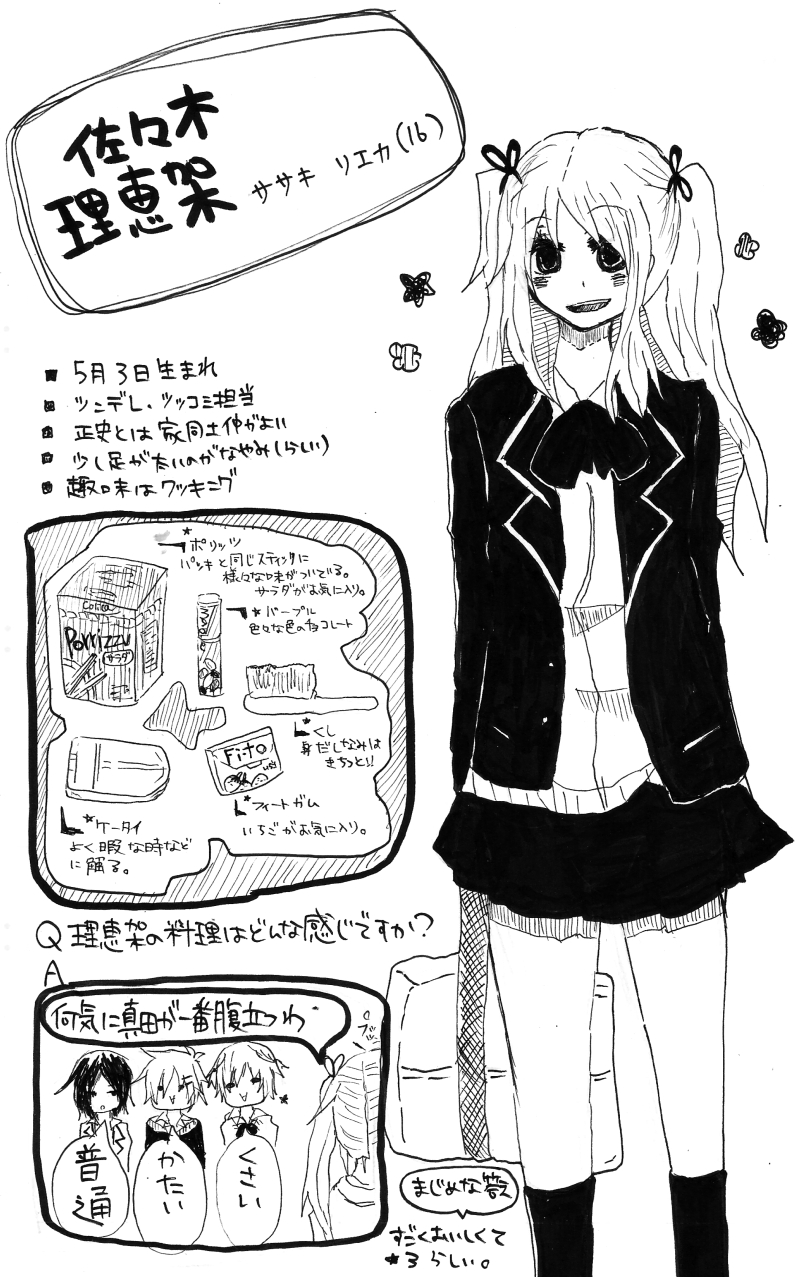 佐々木
理恵架
ササキ リエカ(16)
5月3日生まれ
ツンデレ、ツッコミ担当
正史とは家同士仲がよい
少し足が太いのがなやみ(らしい)
趣味はクッキング
*ポリッツ
パッキと同じスティックに
様々な味がついてる。
サラダがお気に入り。
Colico
Porrizzu
サラダ
*パープル
色々な色のチョコレート
*くし
身だしなみは
きちっと!!
Fi-to
*フィートガム
いちごがお気に入り。
*ケータイ
よく暇な時など
に触る。
Q 理恵架の料理はどんな感じですか?
A
何気に真田が一番腹立つわ
くさい
かたい
普通
まじめな答え
すごくおいしくて
*3らしい。